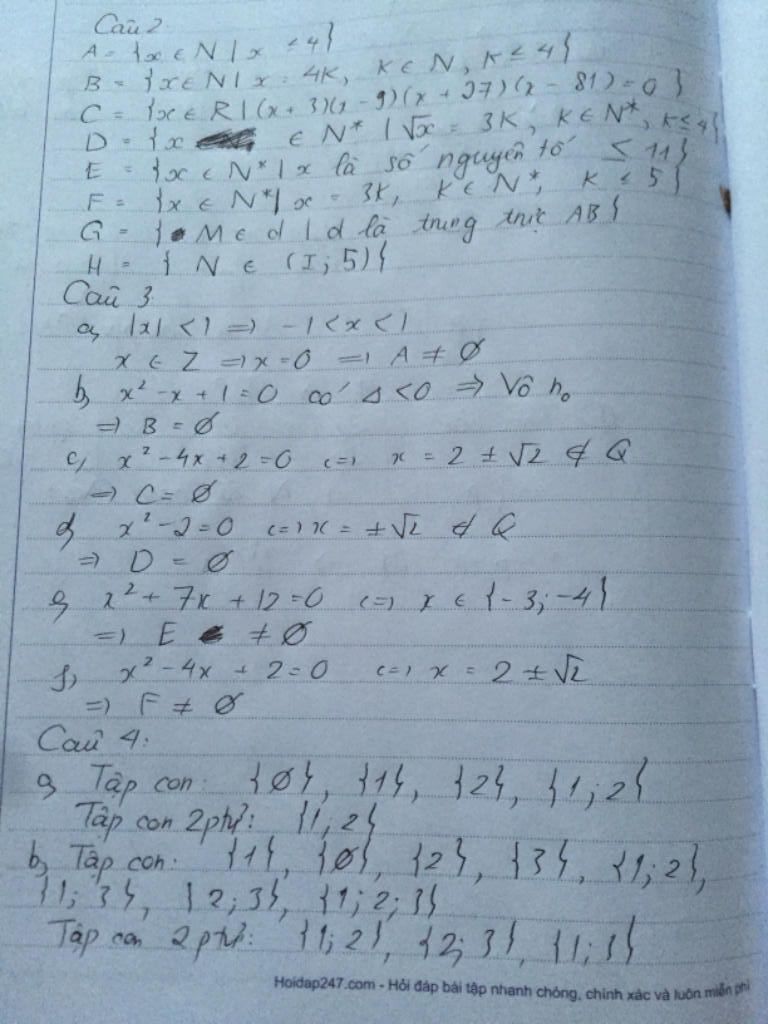 Câu 2
A = {x ∈ N | x ≤ 4}
B = {x ∈ N | x = 4K, K ∈ N, K ≤ 4}
C = {x ∈ R | (x + 3)(x - 9)(x + 27)(x - 81) = 0}
D = {x ∈ N* | √x = 3K, K ∈ N*, K ≤ 4}
E = {x ∈ N* | x là số nguyên tố ≤ 11}
F = {x ∈ N* | x = 3K, K ∈ N*, K ≤ 5}
G = {M ∈ d | d là trung trực AB}
H = {N ∈ (I; 5)}
Câu 3
a, |x| < 1 => -1 < x < 1
x ∈ Z => x = 0 => A ≠ Ø
b, x² - x + 1 = 0 có Δ < 0 => Vô n₀
=> B = Ø
c, x² - 4x + 2 = 0 <=> x = 2 ± √2 ∉ Q
=> C = Ø
d, x² - 2 = 0 <=> x = ± √2 ∉ Q
=> D = Ø
e, x² + 7x + 12 = 0 <=> x ∈ {-3; -4}
=> E ≠ Ø
f, x² - 4x + 2 = 0 <=> x = 2 ± √2
=> F ≠ Ø
Câu 4:
a, Tập con: {Ø}, {1}, {2}, {1; 2}
Tập con 2 ptử: {1; 2}
b, Tập con: {1}, {Ø}, {2}, {3}, {1; 2},
{1; 3}, {2; 3}, {1; 2; 3}
Tập con 2 ptử: {1; 2}, {2; 3}, {1; 3}
Hoidap247.com - Hỏi đáp bài tập nhanh chóng, chính xác và luôn miễn phí